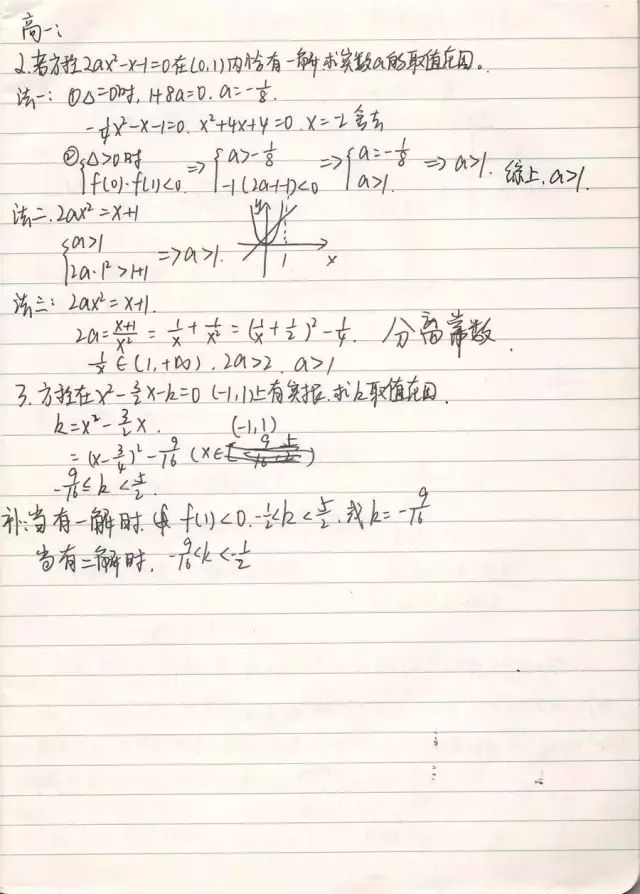 高一:
2.若方程2ax²-x-1=0在(0,1)内恰有一解求实数a的取值范围。
法一:①Δ=0时,1+8a=0. a=-1/8.
-1/4x²-x-1=0. x²+4x+4=0. x=-2 舍去
②{Δ>0时 f(0)·f(1)<0 ⇒ {a>-1/8 -1(2a-1-1)<0 ⇒ {a=-1/8 a>1. ⇒ a>1. 综上,a>1.
法二. 2ax²=x+1
{a>1 2a·1²>1+1 ⇒a>1. y 1 x
法三: 2ax²=x+1.
2a=(x+1)/x²=1/x+1/x²=(1/x+1/2)²-1/4. 分离常数.
1/x∈(1,+∞). 2a>2. a>1
3.方程在x²-3/2x-k=0 (-1,1)上有实根,求k取值范围.
k=x²-3/2x. (-1,1)
=(x-3/4)²-9/16 (x∈
-9/16≤k<5/2.
补:当有一解时, f(1)<0.-1/2<k<5/2.或k=-9/16
当有二解时, -9/16<k<-1/2